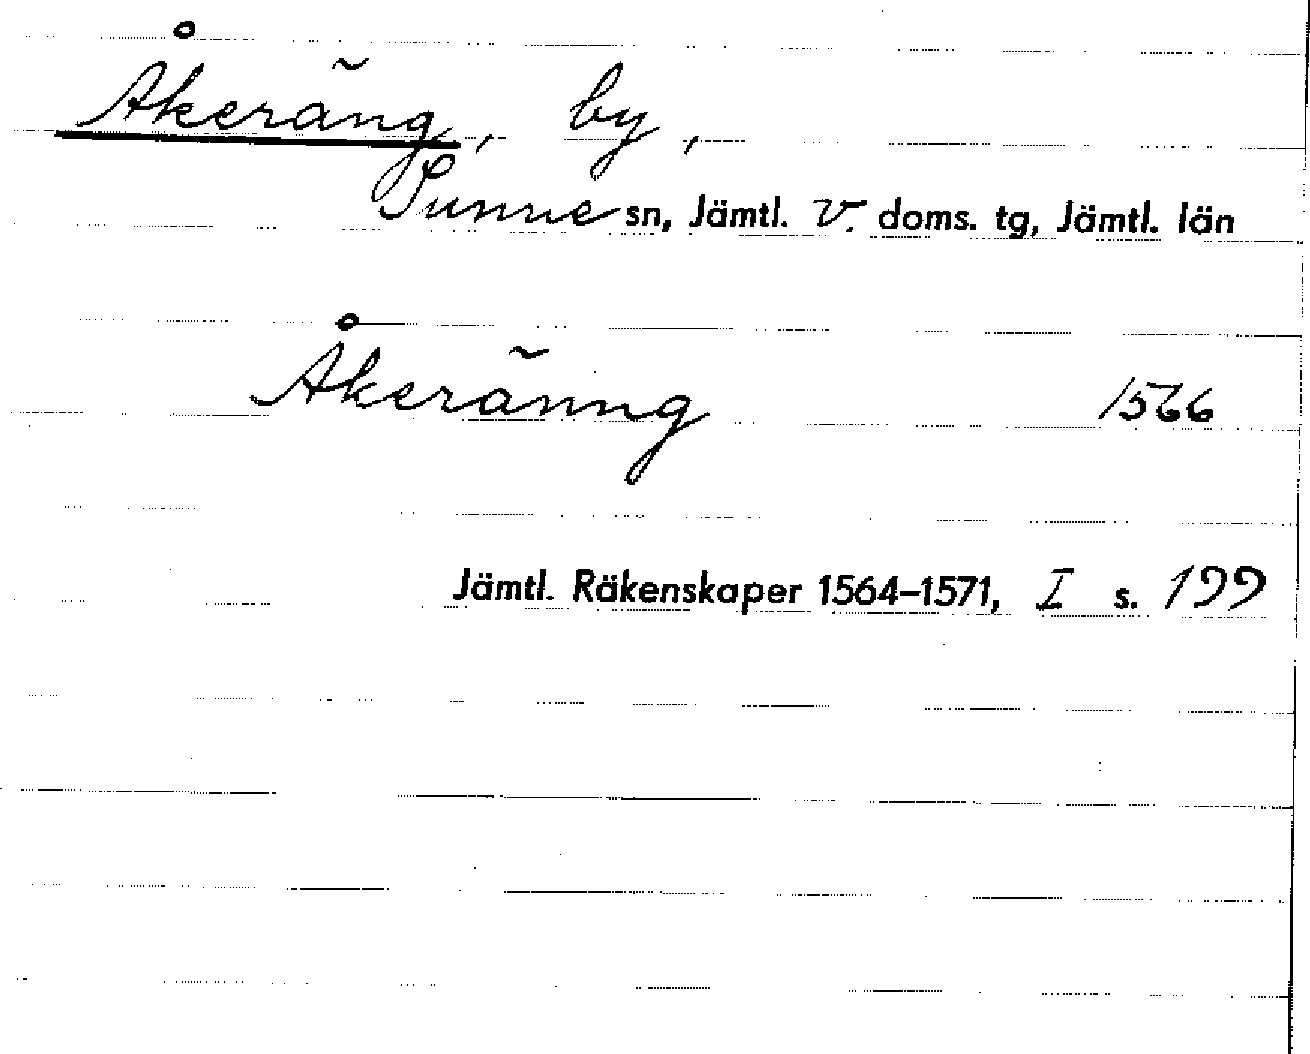 Åkeräng, by,
Sunne sn, Jämtl. v. doms. tg, Jämtl. län
Åkeränng 1566
Jämtl. Räkenskaper 1564–1571, I s. 199